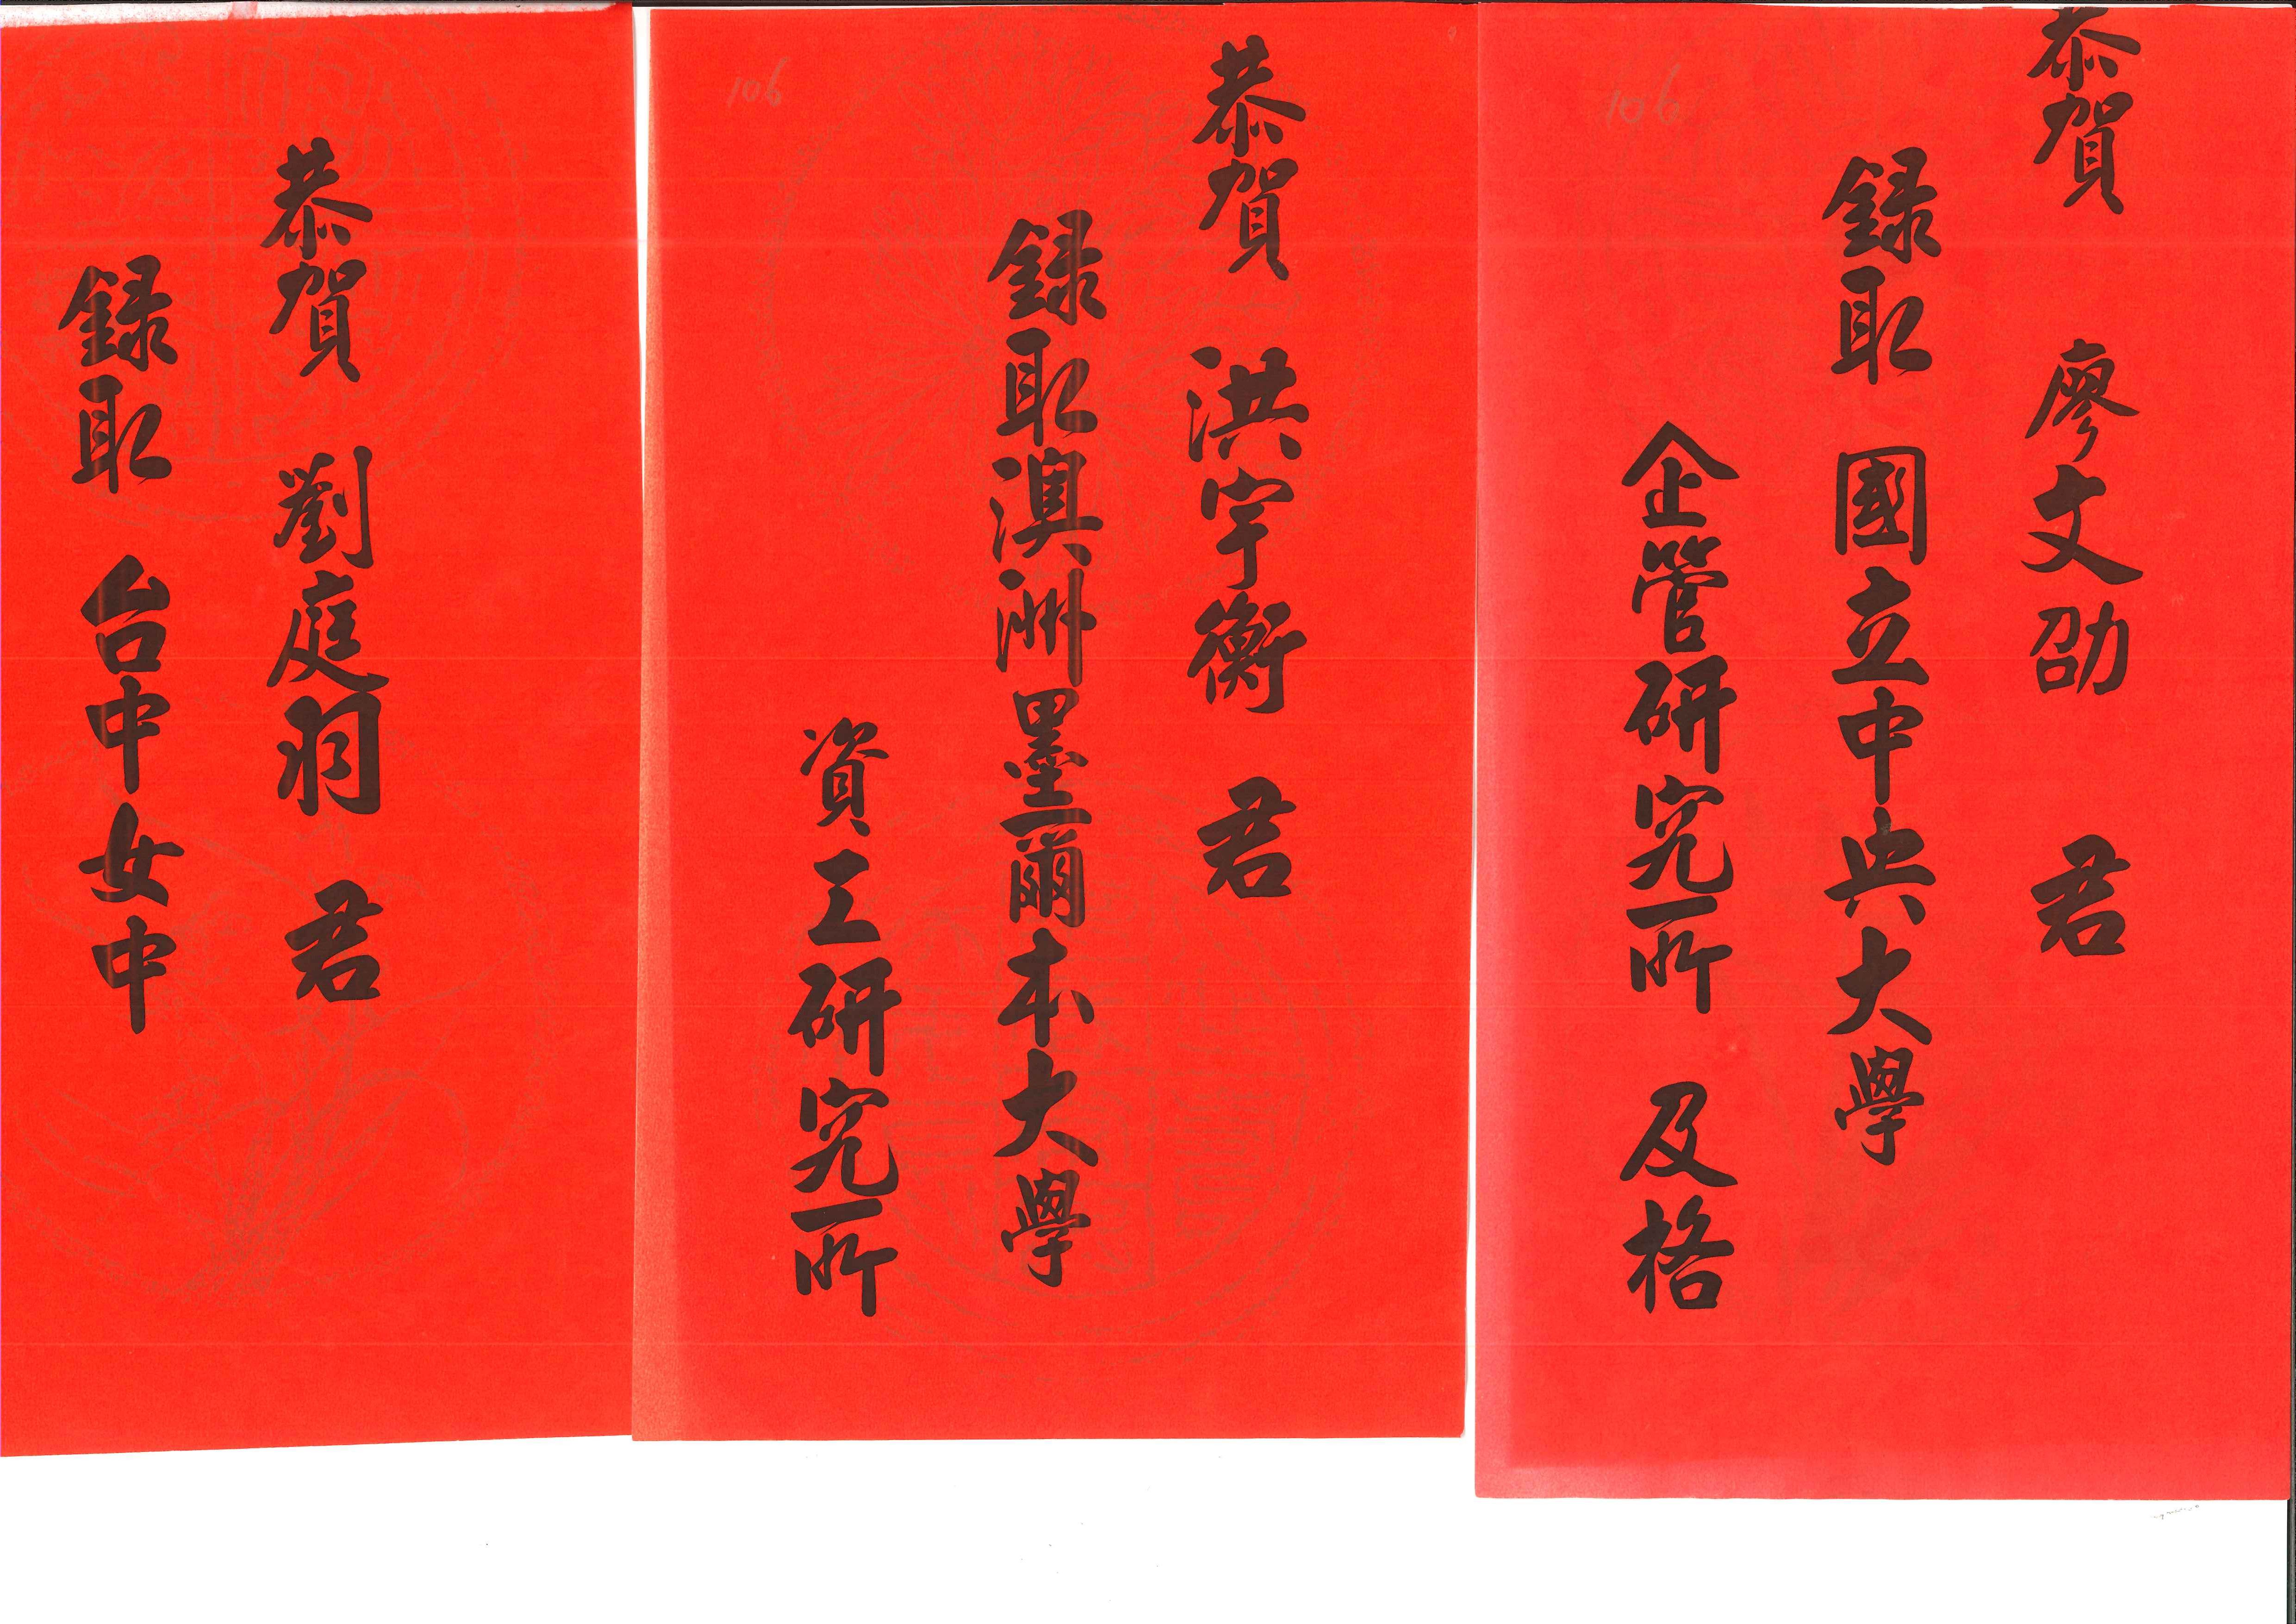 恭賀 廖文劭 君
錄取 國立中央大學
企管研究所 及格
106
恭賀 洪宇衡 君
錄取澳洲墨爾本大學
資工研究所
106
恭賀 劉庭羽 君
錄取 台中女中